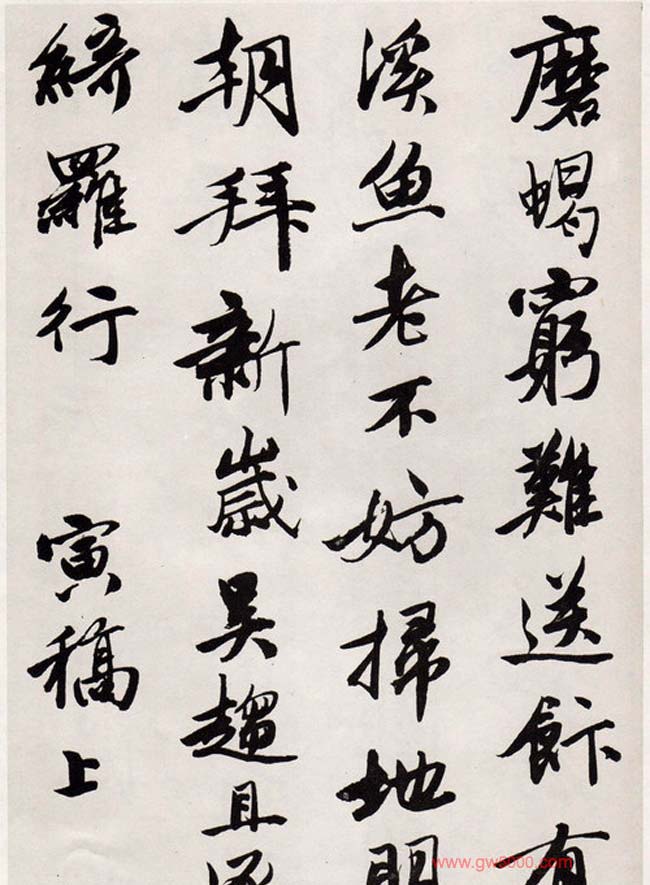 磨蝎窮難送飰有
溪魚老不妨掃地明
朝拜新歲吳趨且逐
綺羅行 寅稿上
www.gw5000.com